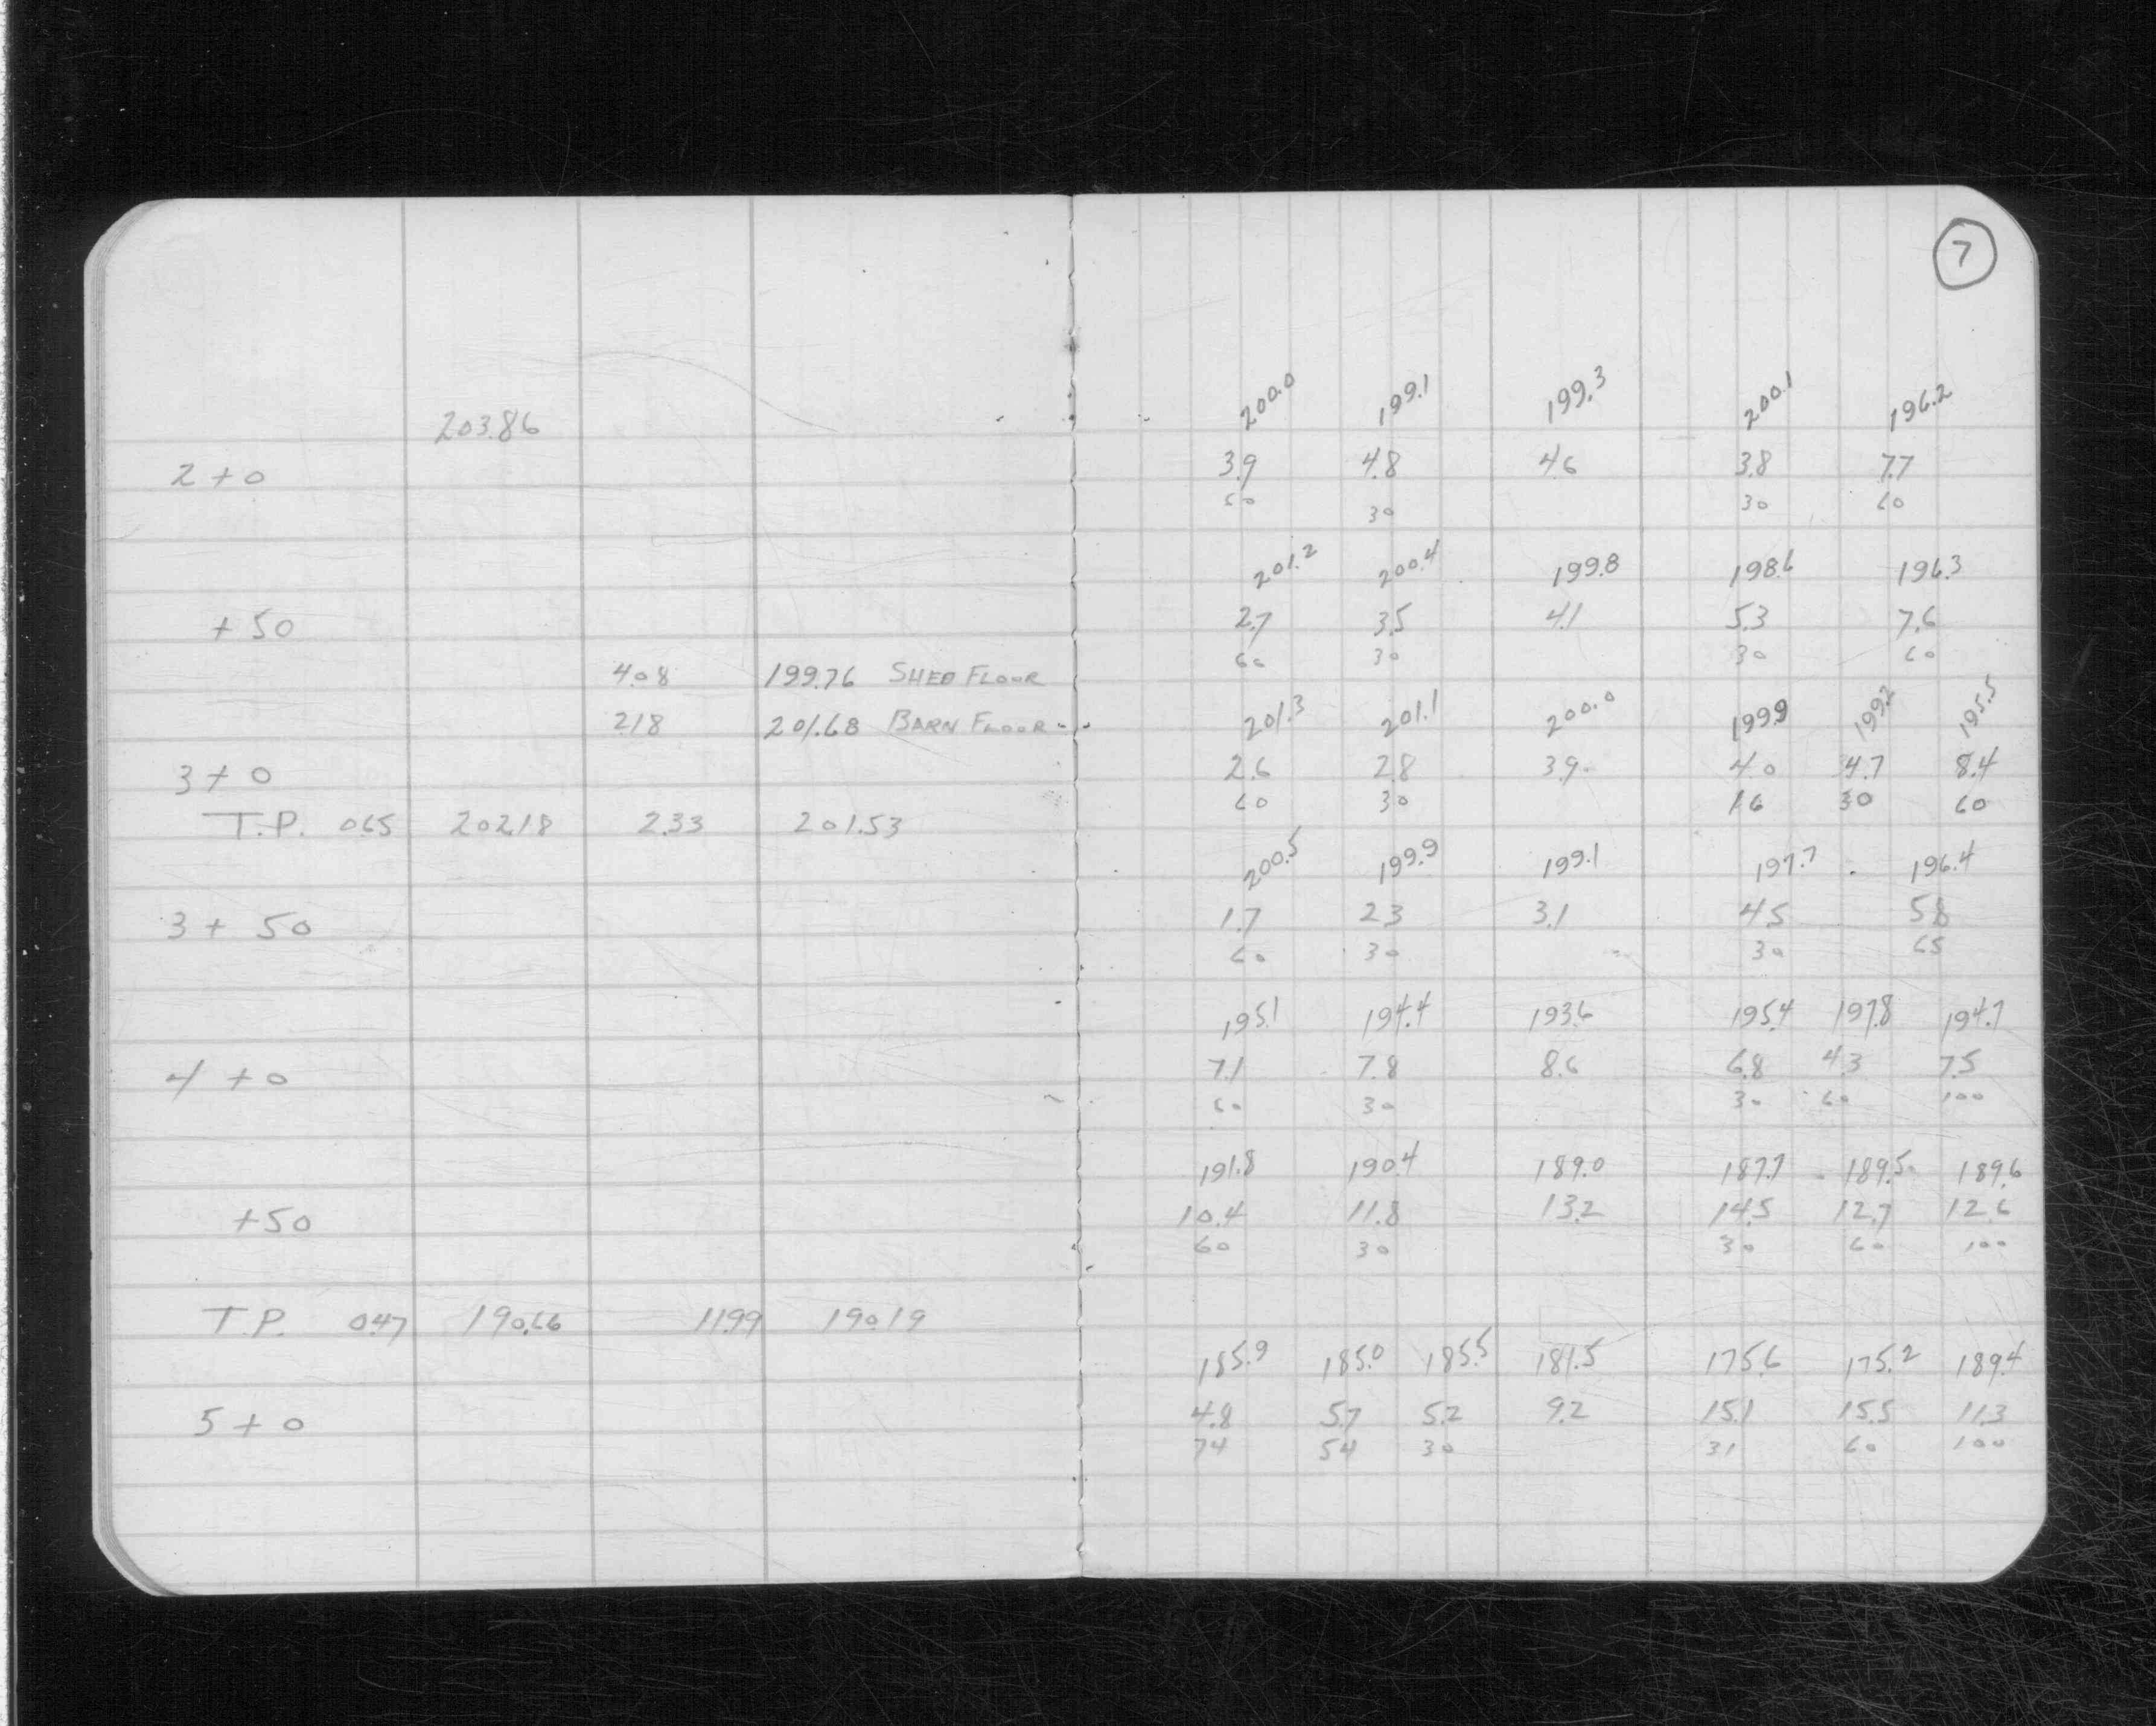 7
200.0 199.1 199.3 200.1 196.2
203.86
2+0 3.9 4.8 4.6 3.8 7.7
60 30 30 60
201.2 200.4 199.8 198.6 196.3
+50 2.7 3.5 4.1 5.3 7.6
60 30 30 60
4.08 199.76 SHED FLOOR
2.18 201.68 BARN FLOOR
201.3 201.1 200.0 199.9 199.2 195.5
3+0 2.6 2.8 3.9 4.0 4.7 8.4
60 30 16 30 60
T.P. 0.65 202.18 2.33 201.53
200.5 199.9 199.1 197.7 196.4
3+50 1.7 2.3 3.1 4.5 5.8
60 30 30 65
195.1 194.4 193.6 195.4 197.8 194.7
4+0 7.1 7.8 8.6 6.8 4.3 7.5
60 30 30 60 100
191.8 190.4 189.0 187.7 189.5 189.6
+50 10.4 11.8 13.2 14.5 12.7 12.6
60 30 30 60 100
T.P. 0.47 190.66 11.99 190.19
185.9 185.0 185.5 181.5 175.6 175.2 189.4
5+0 4.8 5.7 5.2 9.2 15.1 15.5 11.3
74 54 30 31 60 100